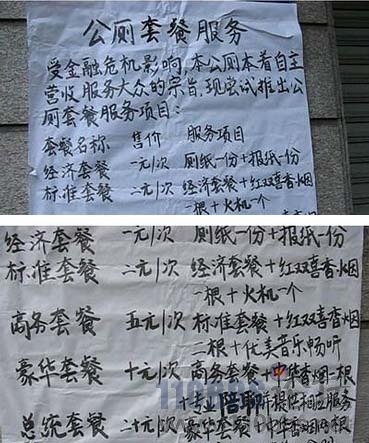 公厕套餐服务
受金融危机影响,本公厕本着自主
营收服务大众的宗旨,现尝试推出公
厕套餐服务项目:
套餐名称 售价 服务项目
经济套餐 一元/次 厕纸一份+报纸一份
标准套餐 二元/次 经济套餐+红双喜香烟
一根+火机一个
经济套餐 一元/次 厕纸一份+报纸一份
标准套餐 二元/次 经济套餐+红双喜香烟
一根+火机一个
商务套餐 五元/次 标准套餐+红双喜香烟
一根+优美音乐畅听
豪华套餐 十元/次 商务套餐+中华香烟一根
专业陪聊
总统套餐 二十元/次 豪华套餐+中华香烟两根